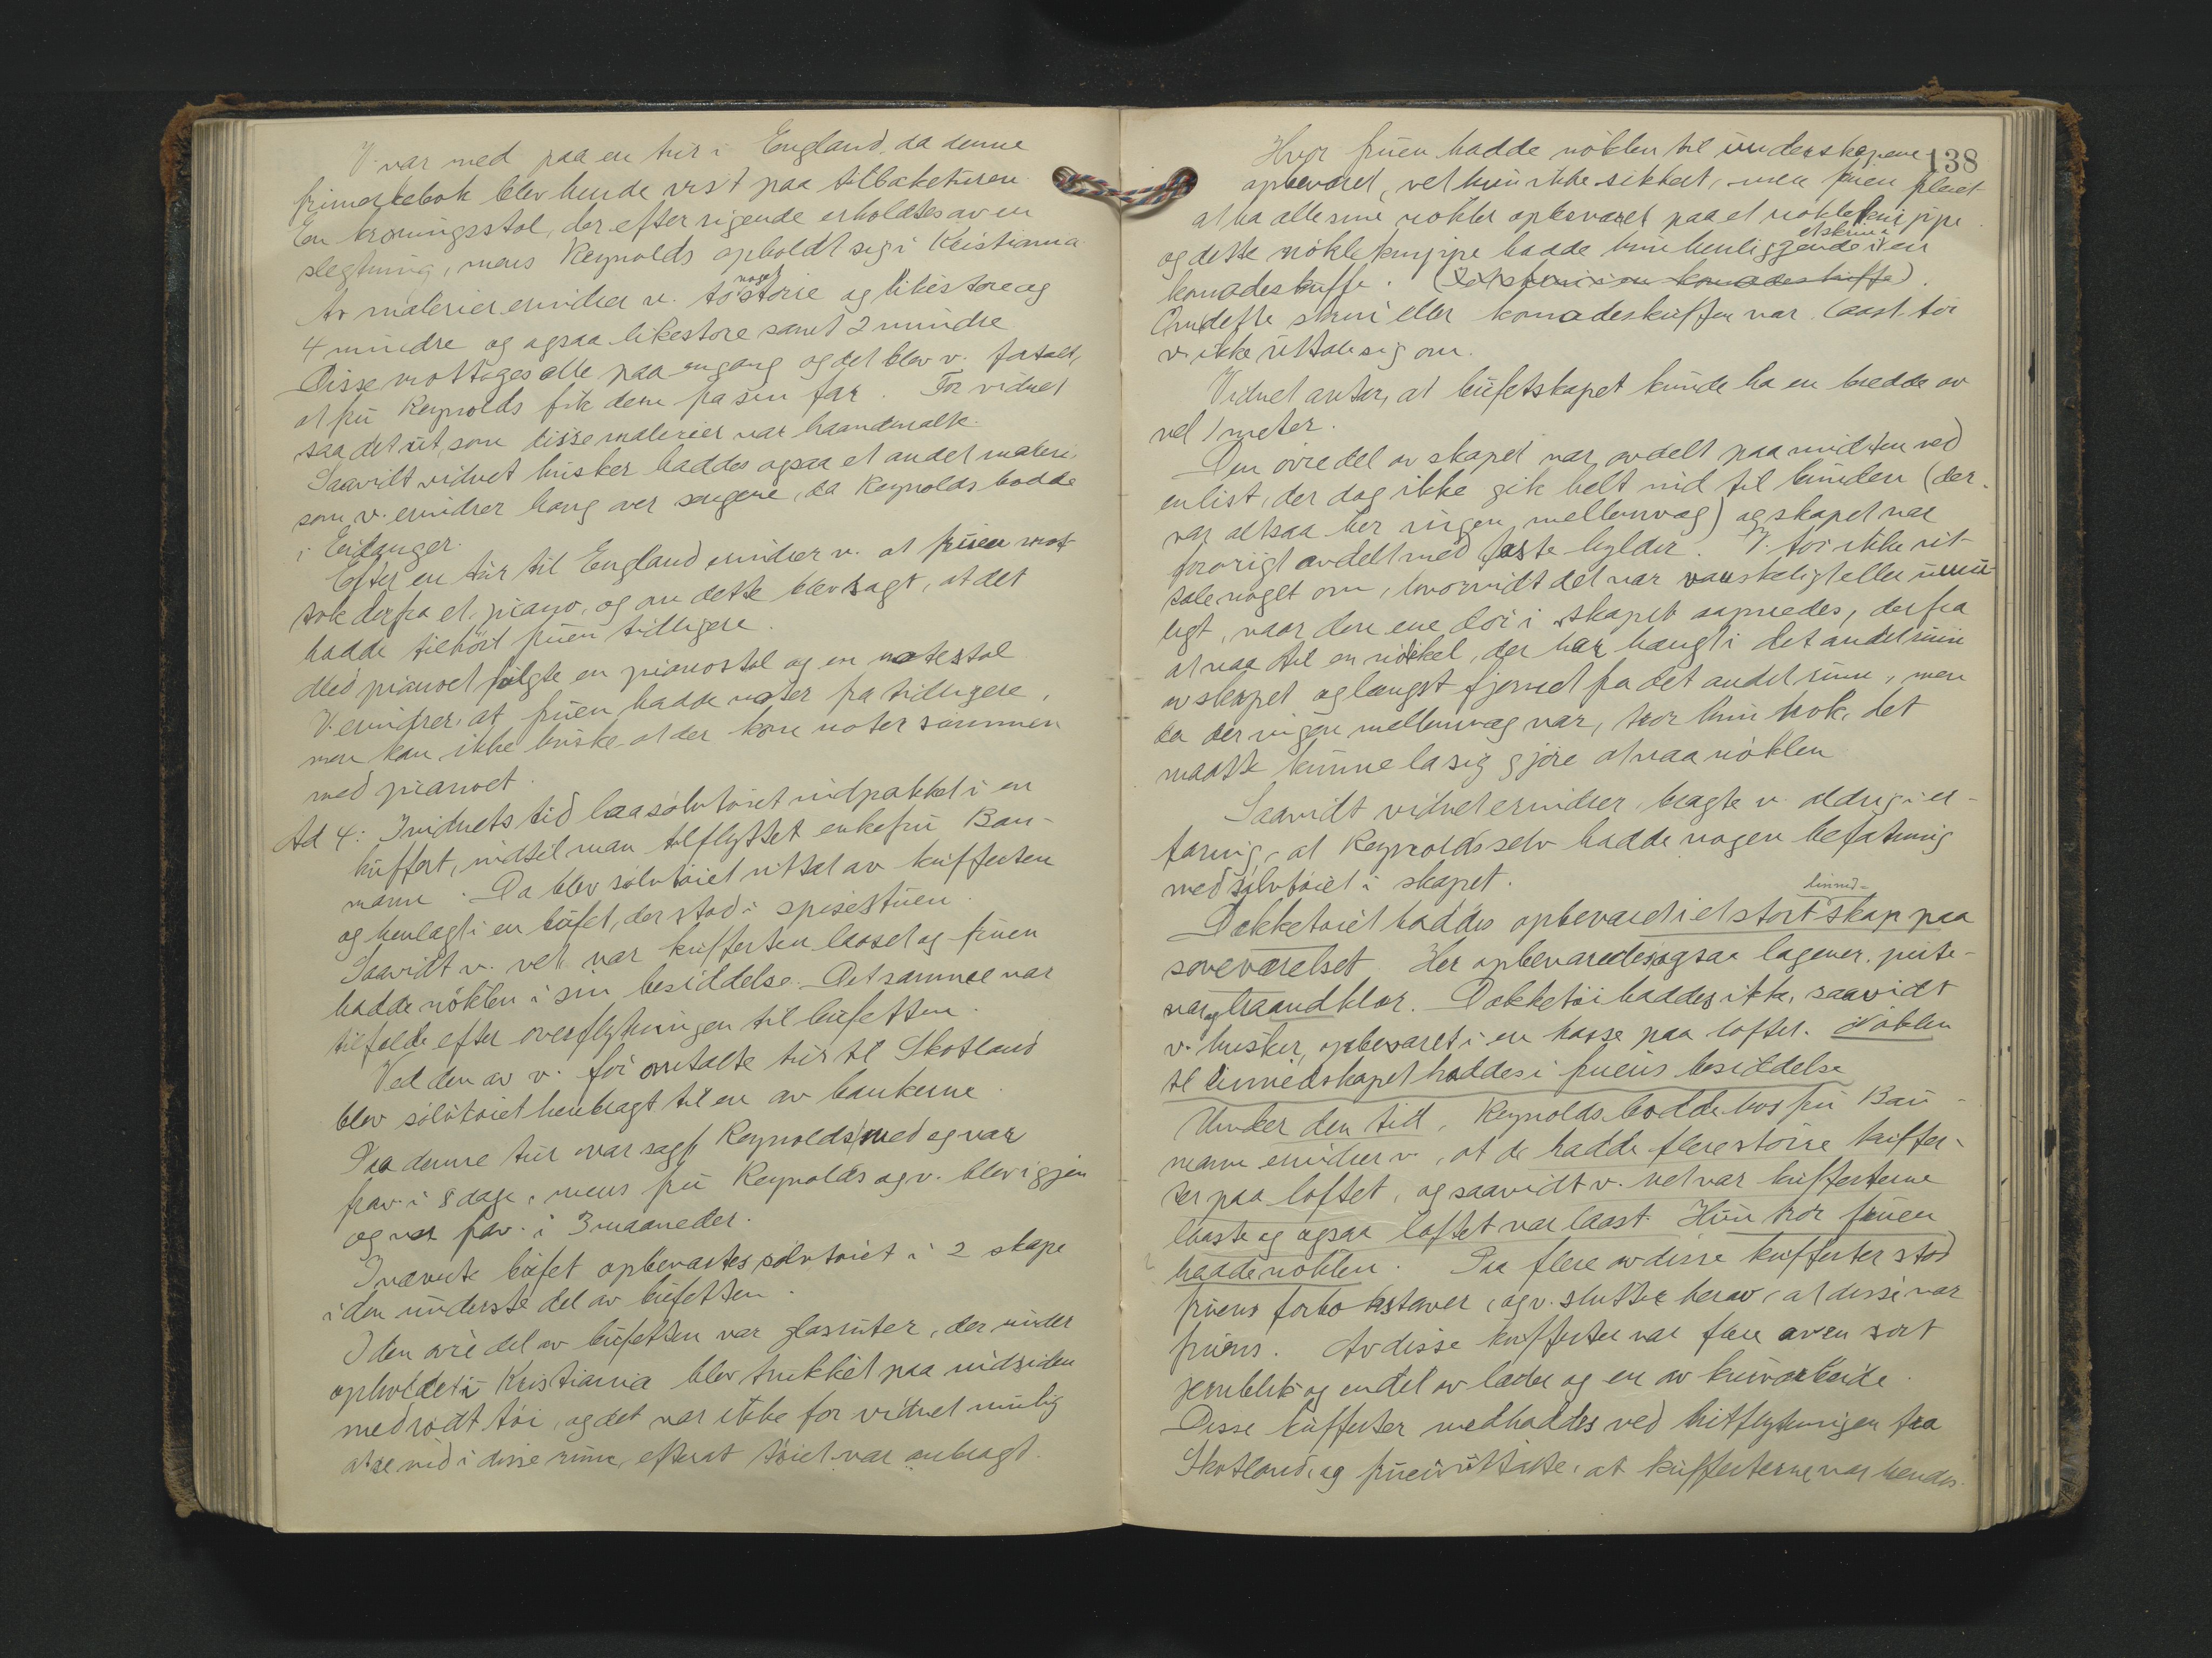 V. var med paa en tur i England, da denne
frimerkebok blev hende vist paa tilbaketuren.
En kroningsstol, der efter sigende erholdtes av en
slegtning, mens Reynolds opholdt sig i Kristiania.
Av malerier erindrer v. to noget større og likestore og
4 mindre og ogsaa likestore samt 2 mindre
Disse mottoges alle paa engang og det blev v. fortalt,
at fru Reynolds fik dem fra sin far. For vidnet
saa det ut, som disse malerier var haandmalte.
Saavidt vidnet husker haddes ogsaa et andet maleri,
som v. erindrer hang over sengene, da Reynolds bodde
i Eidanger.
Efter en tur til England erindrer v. at fruen mot-
tok derfra et piano, og om dette blev sagt, at det
hadde tilhört fruen tidligere.
Med pianoet fulgte en pianostol og en notestol
V. erindrer, at fruen hadde noter fra tidligere,
men kan ikke huske at der kom noter sammen
med pianoet.
Ad 4: I vidnets tid laa sølvtöiet nidpakket i en
kuffert, indtil man tilflyttet enkefru Bau-
mann. Da blev sølvtöiet uttat av kufferten
og henlagt i en büfet, der stod i spisestuen.
Saavidt v. vet var kufferten laaset og fruen
hadde nöklen i sin besiddelse. Det samme var
tilfelde efter overflytningen til büfetten.
Ved den av v. för omtalte tur til Skotland
blev sölvtöiet henbragt til en av bankerne.
Paa denne tur var sagf. Reynolds med og var
frav. i 8 dage, mens fru Reynolds og v. blev igjen
og var frav. i 3 maaneder.
I nævnte büfet opbevartes sölvtöiet i 2 skape
i den underste del av büfetten.
I den övre del av büfetten var glasruter, der under
opholdet i Kristiania blev trukket paa indsiden
med rödt töi, og det var ikke for vidnet mulig
at se ind i disse rum, efterat töiet var anbragt.
138
Hvor fruen hadde nöklen til underskapene
opbevaret, vet hun ikke sikkert, men fruen pleiet
at ha alle sine nökler opbevaret paa et nökleknippe
og dette nökleknippe hadde hun henliggende i et skrin i en
komodeskuffe. (I et skrin i en komodeskuffe).
Om dette skrin eller komodeskuffen var laast tör
v. ikke uttale sig om.
Vidnet antar, at büfetskapet kunde ha en bredde av
vel 1 meter.
Den övre del av skapet var avdelt paa midten ved
en list, der dog ikke gik helt ind til bunden (der
var altsaa her ingen mellemvæg) og skapet var
forövrigt avdelt med faste hylder. V. tör ikke ut-
tale noget om, hvorvidt det var vanskelig eller umu-
ligt, naar den ene dör i skapet aapnedes, derfra
at naa til en nökkel, der har hangt i det andet rum
av skapet og længst fjernet fra det andet rum, men
da der ingen mellemvæg var, tror hun nok, det
maatte kunne la sig gjöre at naa nöklen
Saavidt vidnet erindrer bragte v. aldrig i er-
faring, at Reynolds selv hadde nogen befatning
med sölvtöiet i skapet.
Dækketöiet haddes opbevaret i et stort linned- skap paa
soveværelset. Her opbevaredes ogsaa lagener, pute-
var og haandklær. Dækketöi haddes ikke, saavidt
v. husker, opbevaret i en kasse paa loftet. Nöklen
til linnedskapet haddes i fruens besiddelse
Under den tid, Reynolds bodde hos fru Bau-
mann erindrer v., at de hadde flere större kuffer-
ter paa loftet, og saavidt v. vet var kufferterne
laaste og ogsaa loftet var laast. Hun tror fruen
hadde nöklen. Paa flere av disse kufferter stod
fruens forbokstaver, og v. slutter herav, at disse var
fruens. Av disse kufferter var flere av en sort
jernblik og endel av læder og en av kurvarbeide.
Disse kufferter medhaddes ved hitflytningen fra
Skotland, og fruen uttalte, at kufferterne var hendes.